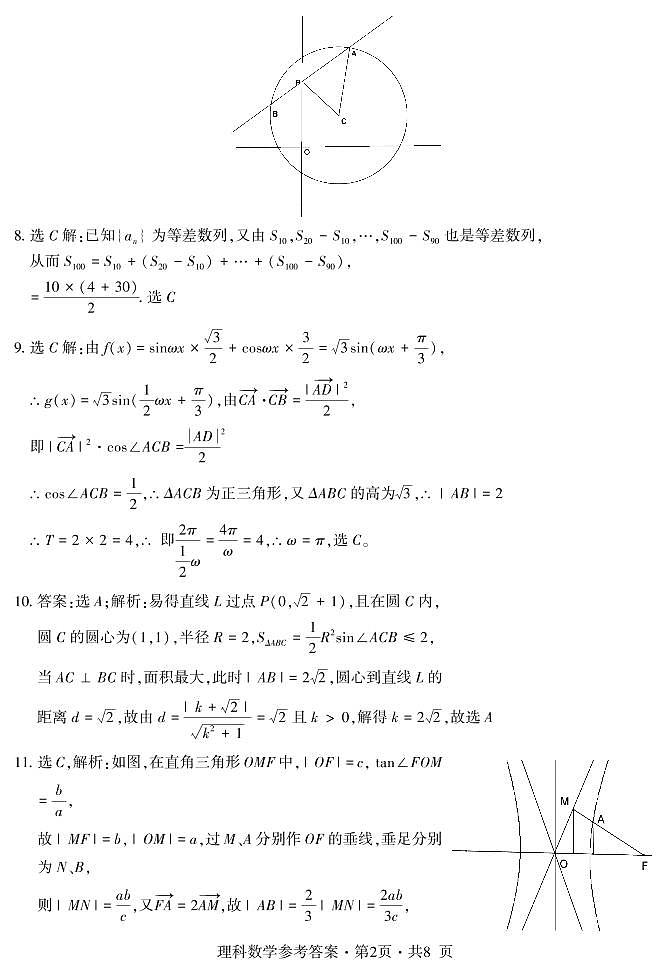 A
P
B
C
O
8. 选 C 解:已知{aₙ} 为等差数列,又由 S₁₀,S₂₀ - S₁₀,…,S₁₀₀ - S₉₀ 也是等差数列,
从而 S₁₀₀ = S₁₀ + (S₂₀ - S₁₀) + … + (S₁₀₀ - S₉₀),
= \frac{10 × (4 + 30)}{2}. 选 C
9. 选 C 解:由 f(x) = sinωx × \frac{√3}{2} + cosωx × \frac{3}{2} = √3sin(ωx + \frac{π}{3}),
∴ g(x) = √3sin(\frac{1}{2}ωx + \frac{π}{3}),由\overrightarrow{CA} · \overrightarrow{CB} = \frac{|\overrightarrow{AD}|²}{2},
即|\overrightarrow{CA}|² · cos∠ACB = \frac{|AD|²}{2}
∴ cos∠ACB = \frac{1}{2},∴ ΔACB 为正三角形,又 ΔABC 的高为√3,∴ |AB| = 2
∴ T = 2 × 2 = 4,∴ 即\frac{2π}{\frac{1}{2}ω} = \frac{4π}{ω} = 4,∴ ω = π,选 C。
10. 答案:选 A;解析:易得直线 L 过点 P(0,√2 + 1),且在圆 C 内,
圆 C 的圆心为(1,1),半径 R = 2,S_{ΔABC} = \frac{1}{2}R²sin∠ACB ≤ 2,
当 AC ⊥ BC 时,面积最大,此时|AB| = 2√2,圆心到直线 L 的
距离 d = √2,故由 d = \frac{|k + √2|}{\sqrt{k² + 1}} = √2 且 k > 0,解得 k = 2√2,故选 A
11. 选 C,解析:如图,在直角三角形 OMF 中,|OF| = c, tan∠FOM
= \frac{b}{a},
故|MF| = b,|OM| = a,过 M、A 分别作 OF 的垂线,垂足分别
为 N、B,
则|MN| = \frac{ab}{c},又\overrightarrow{FA} = 2\overrightarrow{AM},故|AB| = \frac{2}{3}|MN| = \frac{2ab}{3c},
M
A
O
F
理科数学参考答案·第2页·共8 页